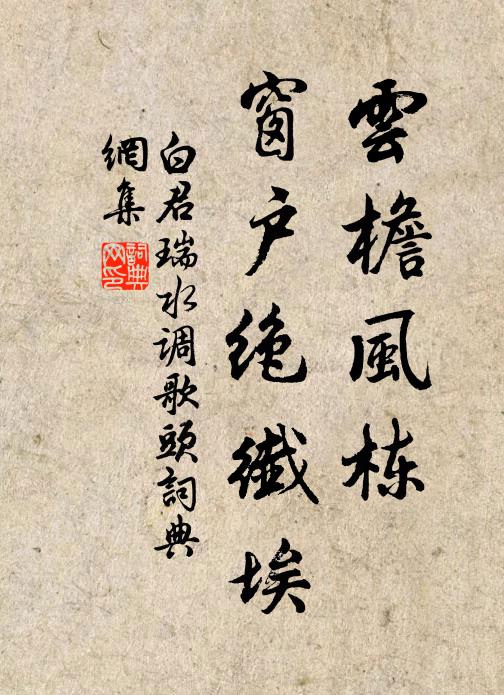 雲檐風栋
窗户绝纖埃
白君瑞水调歌頭詞典
網集
詞典
网印